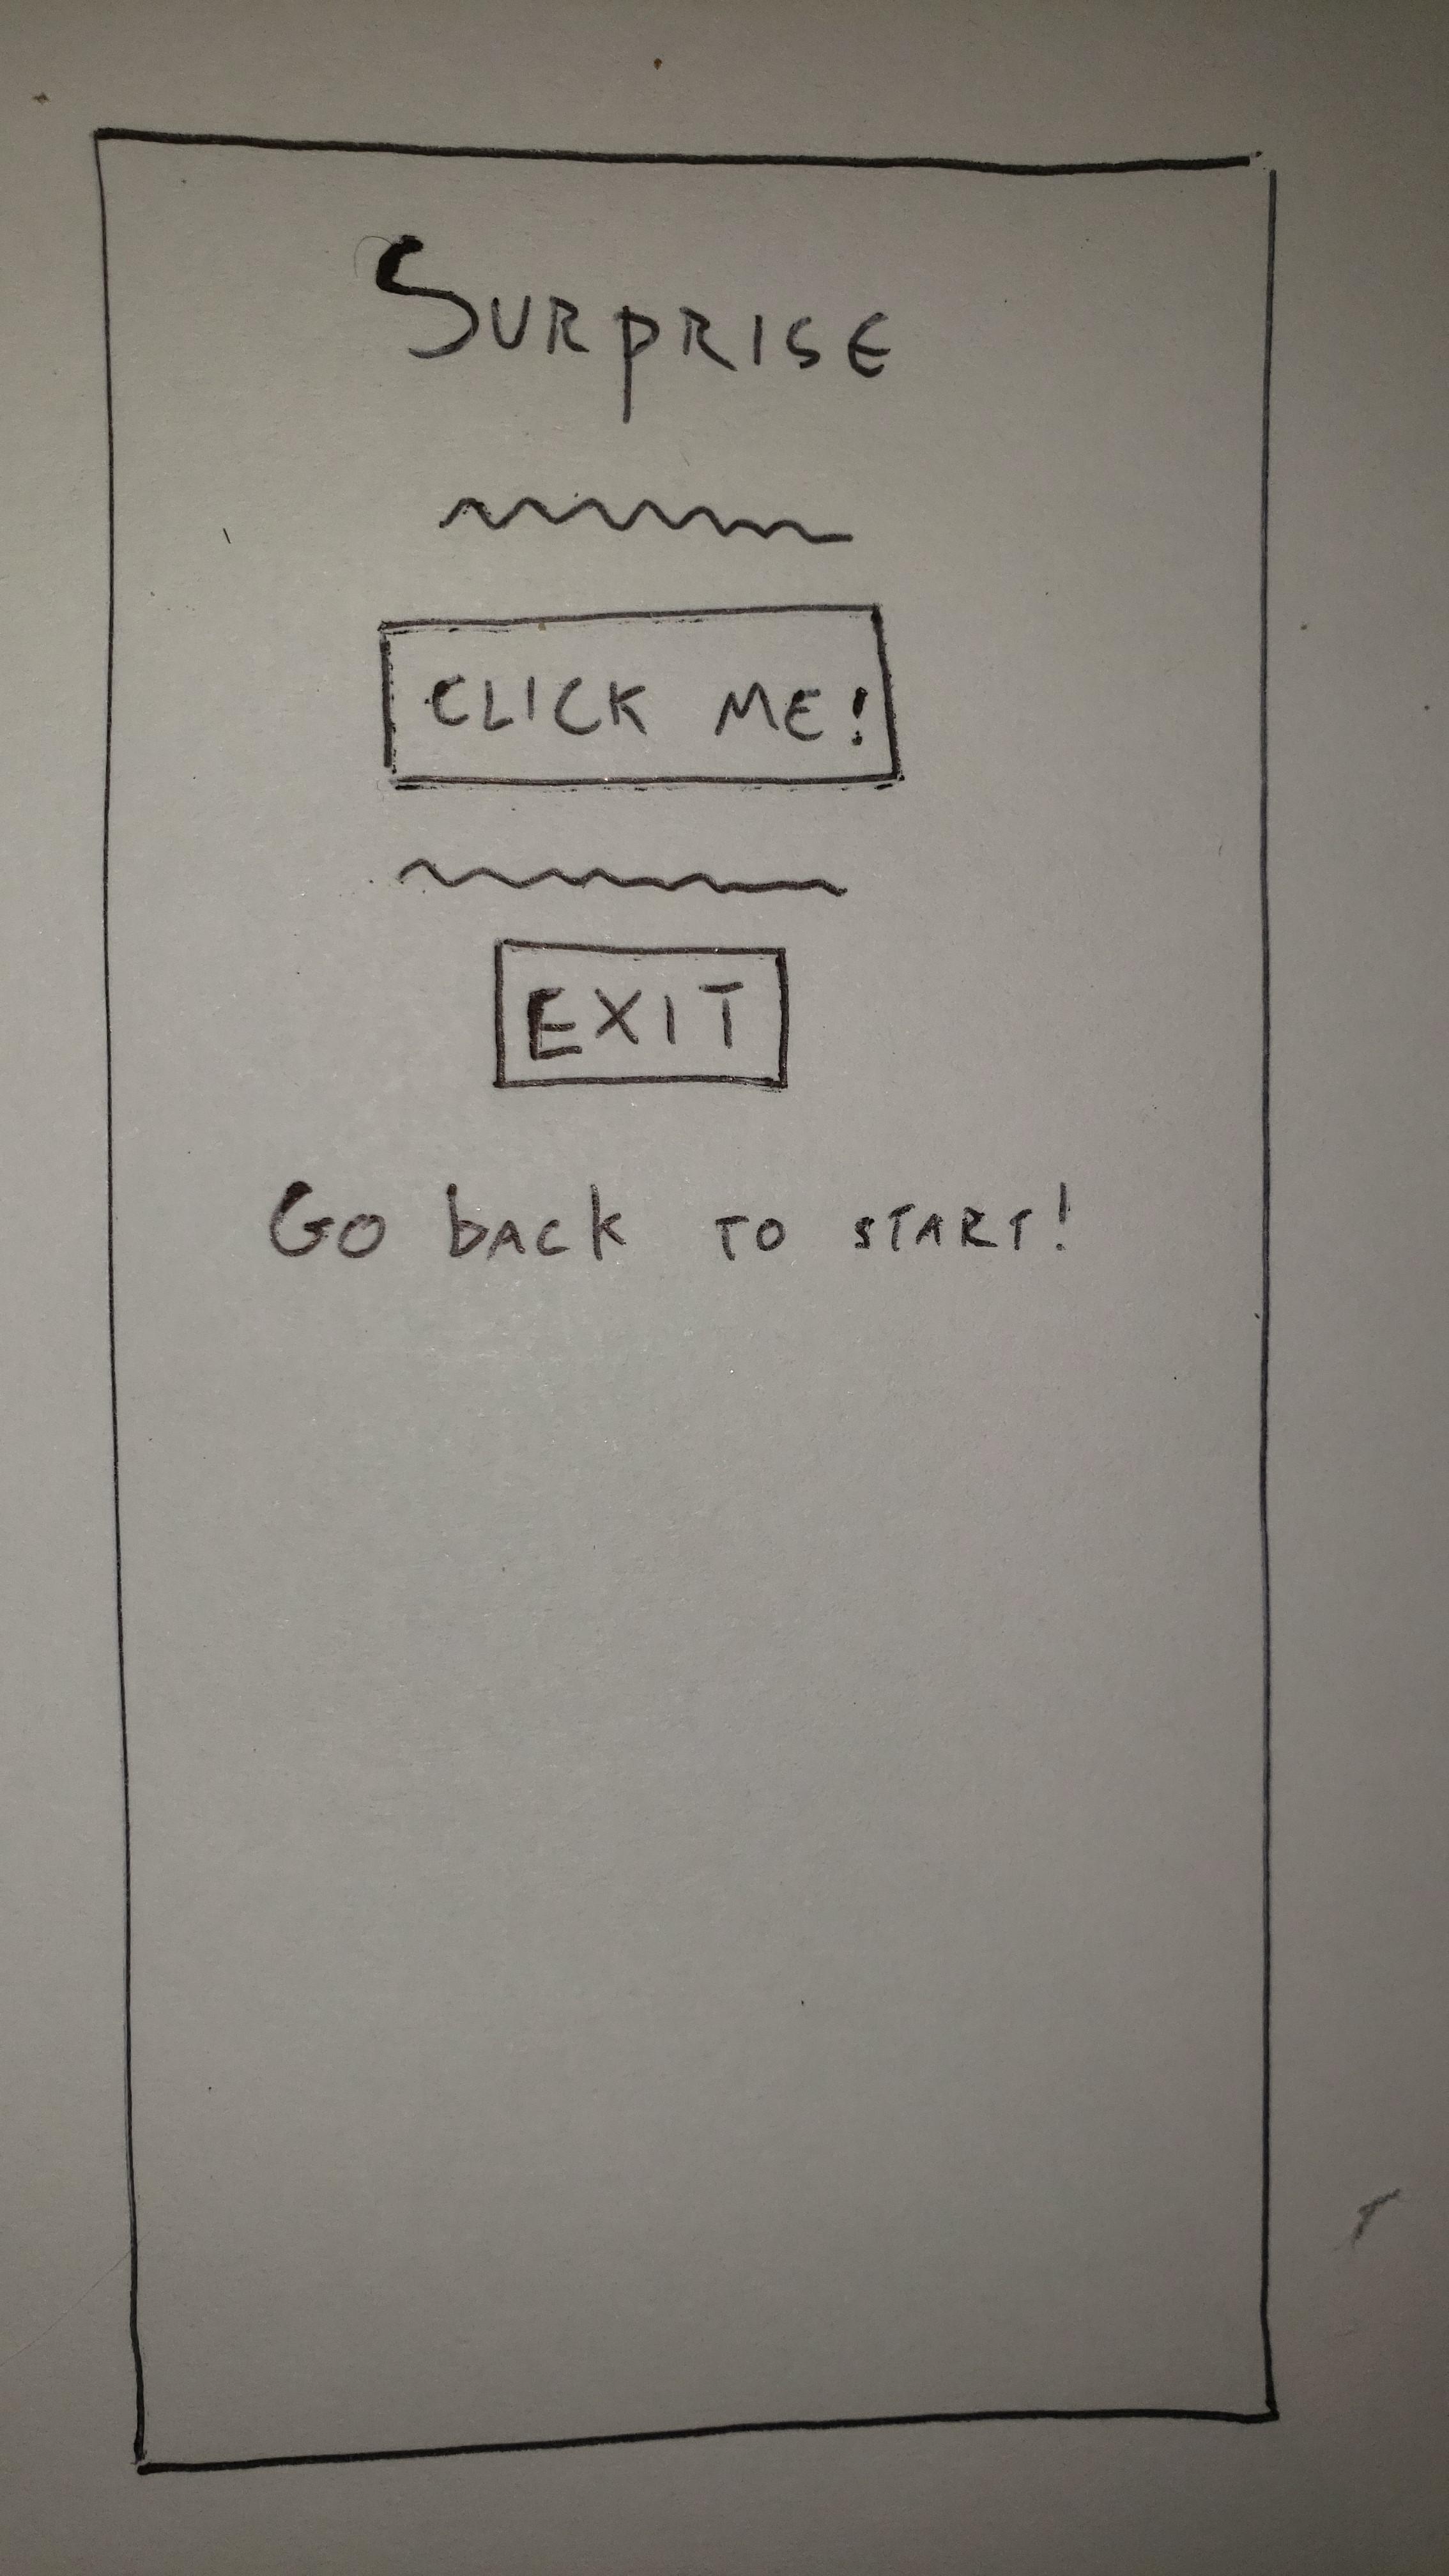 SURPRISE
CLICK ME!
EXIT
Go bACk TO START!